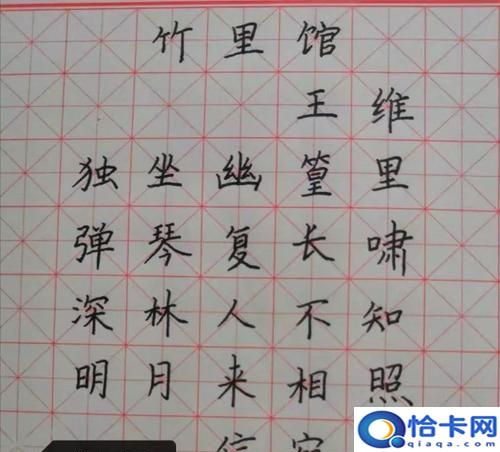 竹里馆
王维
独坐幽篁里
弹琴复长啸
深林人不知
明月来相照
恰卡网
qiaqa.com